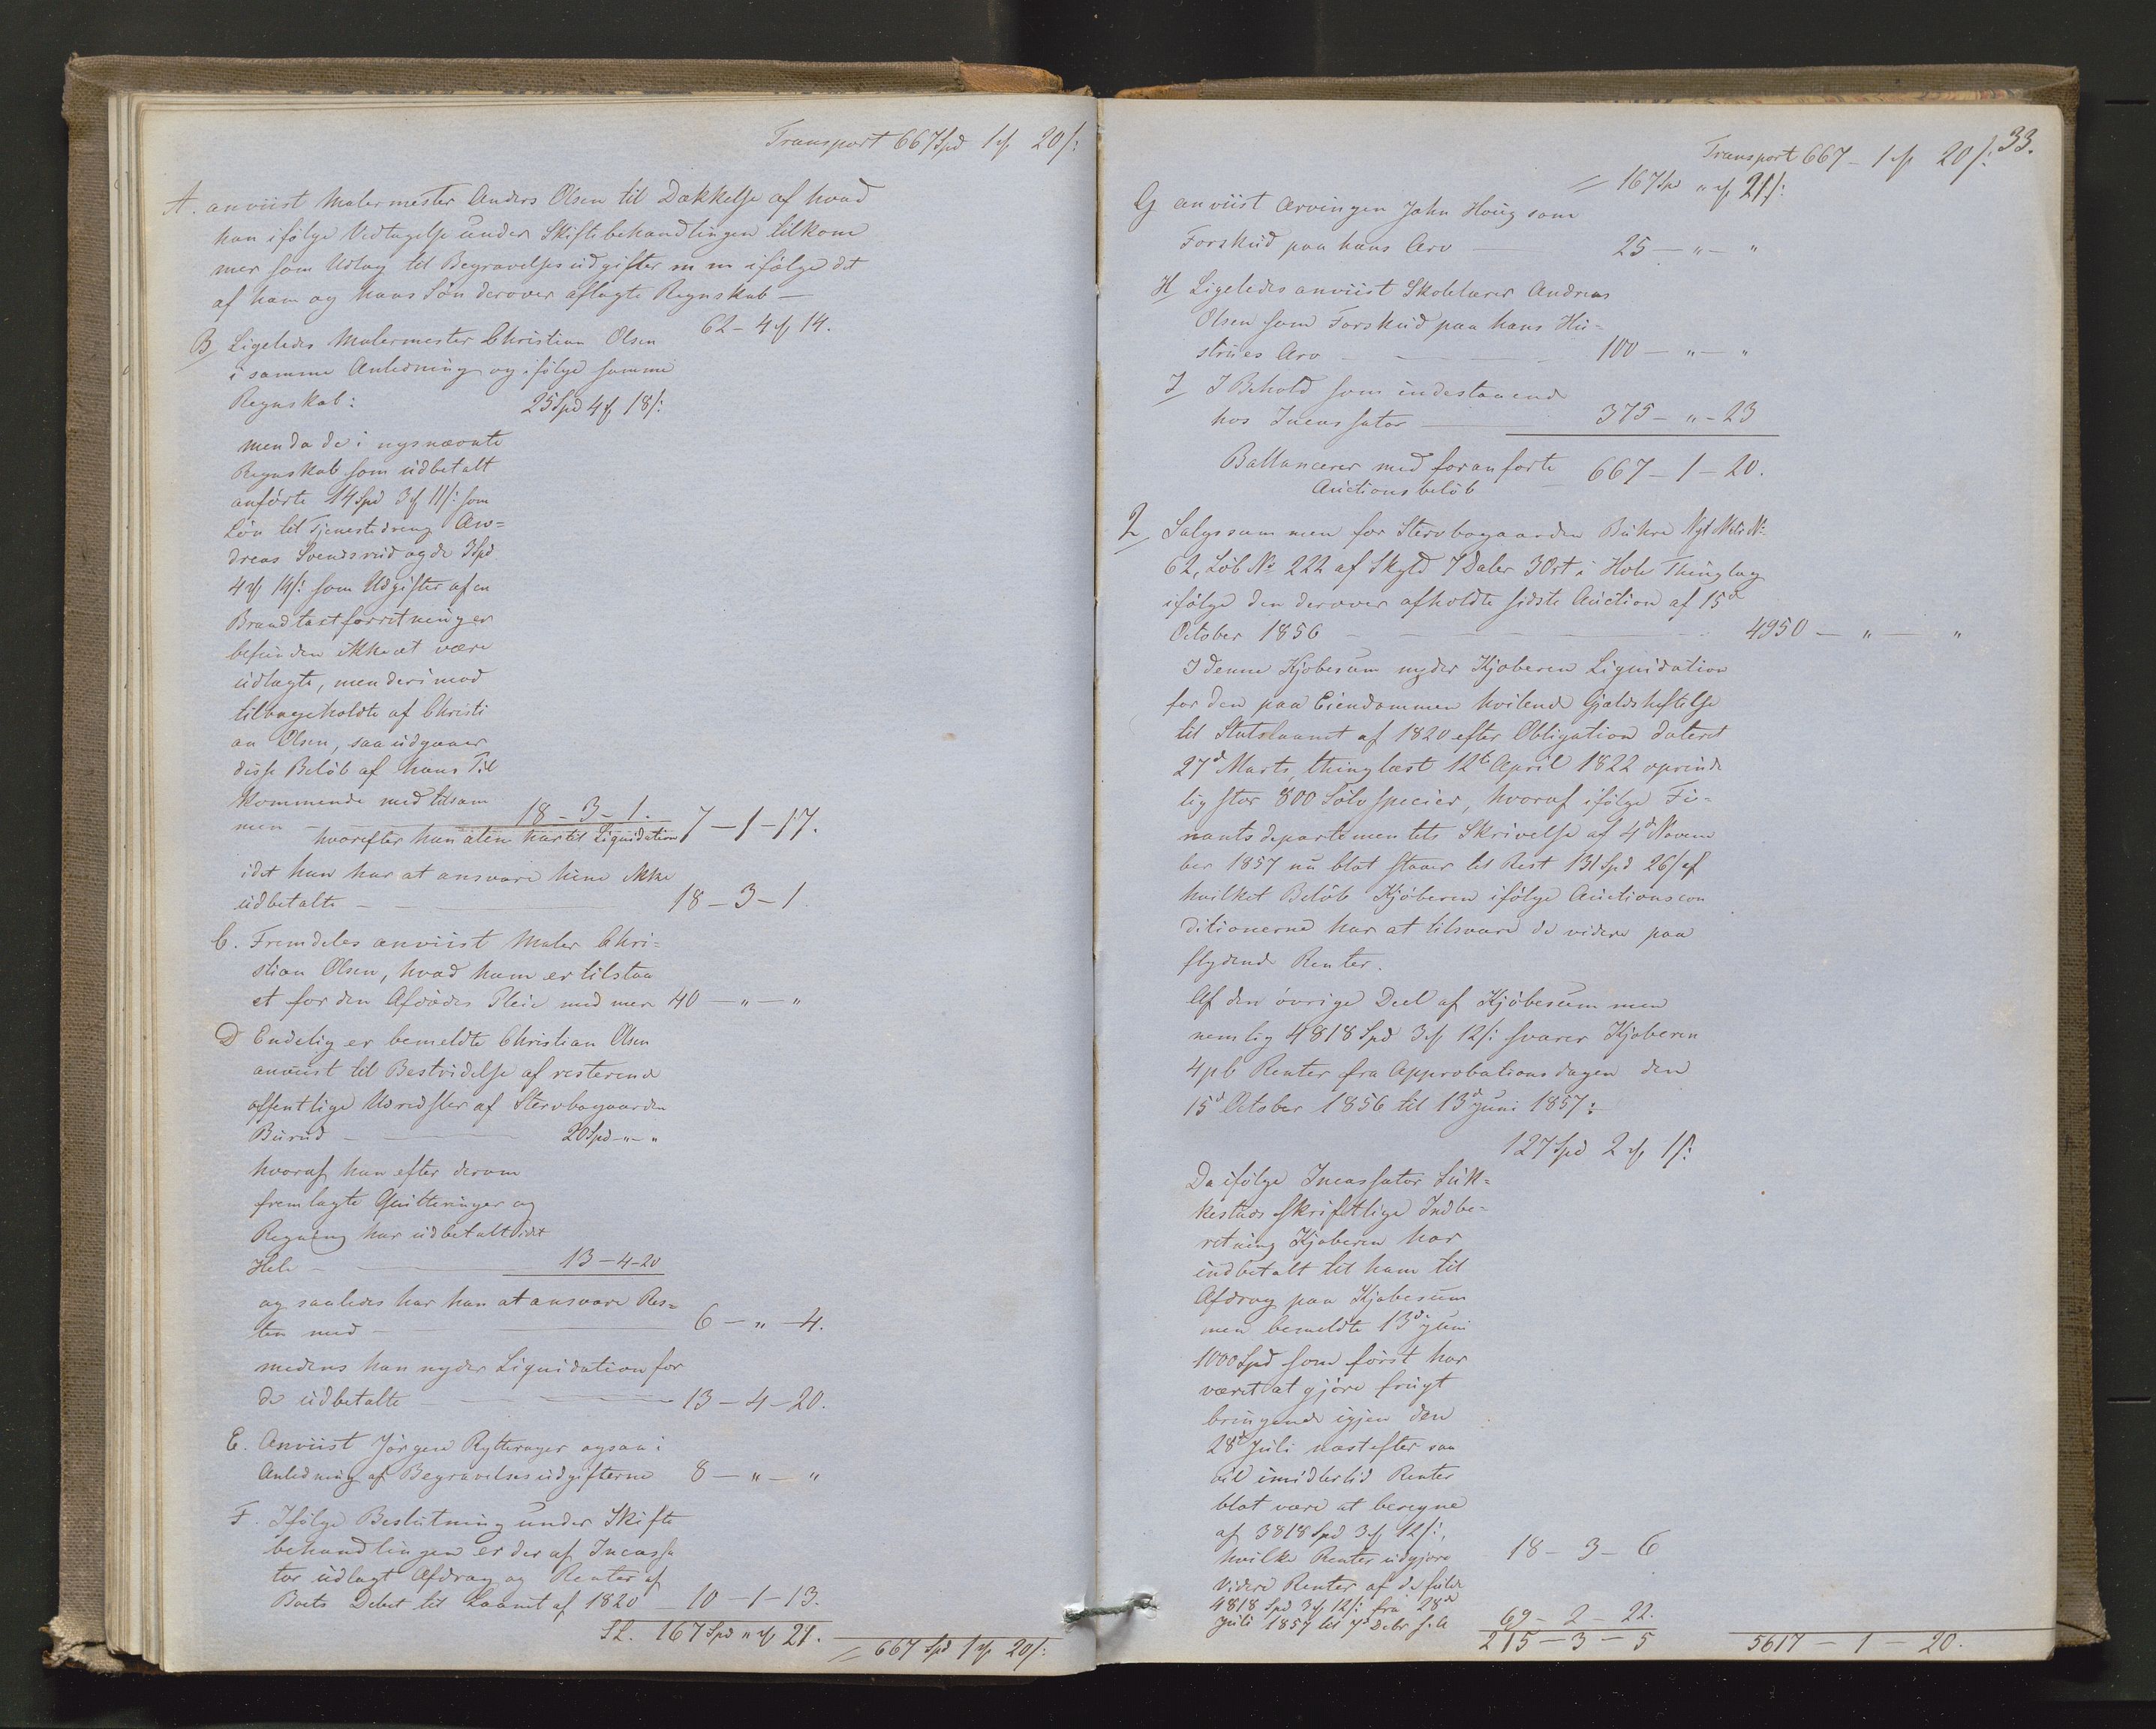 Transport 667 Spd 1 ₰ 20 /:
A. anviist Malermester Anders Olsen til Dækkelse af hvad
han ifølge Vedtagelse under Skiftebehandlingen tilkom
mer som Udlæg til Begravelsesudgifter m m ifølge det
af ham og hans Søn derover aflagte Regnskab —
62 - 4 ₰ 14.
B, Ligeledes Malermester Christian Olsen
i samme Anledning og ifølge samme
Regnskab: 25 Spd 4 ₰ 18 /:
men da de i nysnævnte
Regnskab som udbetalt
anførte 14 Spd 3 ₰ 11 /: som
Løn til Tjenestedreng An=
dreas Svendsrud og de 3 Spd
4 ₰ 14 /: som Udgifter af en
Brandtaxtforretning er
befunden ikke at være
udlagte, men derimod
tilbageholdte af Christi
an Olsen, saa udgaaer
disse Beløb af hans Til
kommende med tilsam
men — 18 - 3 - 1.
hvorefter han alene har til Liquidation 7 - 1 - 17.
idet han har at ansvare hine ikke
udbetalte — 18 - 3 - 1.
C. Fremdeles anviist Maler Chri=
stian Olsen, hvad ham er tilstaa
et for den Afdødes Pleie med mere 40 - " - "
D Endelig er bemeldte Christian Olsen
anviist til Bestridelse af resterende
offentlige Udredsler af Stervbogaarden
Burud — 20 Spd - " - "
hvoraf han efter derom
fremlagte Quitteringer og
Regning har udbetalt idet
Hele — 13 - 4 - 20
og saaledes har han at ansvare Res=
ten med — 6 - " - 4.
medens han nyder Liquidation for
de udbetalte — 13 - 4 - 20.
E. Anviist Jørgen Rytterager ogsaa i
Anledning af Begravelsesudgifterne 8 - " - "
F. Ifølge Beslutning under Skifte
behandlingen er der af Incassa
tor udlagt Afdrag og Renter af
Boets Debet til Laanet af 1820 — 10 - 1 - 13.
SL. 167 Spd " ₰ 21. = 667 Spd 1 ₰ 20 /:
33.
Transport 667 - 1 ₰ 20 /:
= 167 Spd " ₰ 21 /:
G anviist Arvingen John Houg som
Forskud paa hans Arv — 25 - " - "
H Ligeledes anviist Skolelærer Andreas
Olsen som Forskud paa hans Hu=
strues Arv — 100 - " - "
I I Behold som indestaaende
hos Incassator — 375 - " - 23
Ballancerer med foranførte — 667 - 1 - 20.
Auctionsbeløb
2, Salgssummen for Stervbogaarden Buhre Nyt Matr. No
62, Løb No 222 af Skyld 7 Daler 3 Ort i Hole Thinglag
ifølge den derover afholdte sidste Auction af 15d
October 1856 — 4950 - " - "
I denne Kjøbesum nyder Kjøberen Liquidation
for den paa Eiendommen hvilende Gjældsheftelse
til Statslaanet af 1820 efter Obligation dateret
27d Marts, thinglæst 12te April 1822 oprinde
lig stor 800 Sølv specier, hvoraf ifølge Fi=
nantsdepartementets Skrivelse af 4d Novem
ber 1857 nu blot staaer til Rest 131 Spd 26 / af
hvilket Beløb Kjøberen ifølge Auctionscon
ditionerne har at tilsvare de videre paa
flydende Renter.
Af den øvrige Deel af Kjøbesummen
nemlig 4818 Spd 3 ₰ 12 /: svarer Kjøberen
4 pC Renter fra Approbationsdagen den
15d October 1856 til 13d Juni 1857:
127 Spd 2 ₰ 1 /:
Da ifølge Incassator Suk=
kestads skriftlige Indbe=
retning Kjøberen har
indbetalt til ham til
Afdrag paa Kjøbesum
men bemeldte 13d Juni
1000 Spd som først har
været at gjøre frugt
bringende igjen den
28d Juli næstefter saa
vil imidlertid Renter
blot være at beregne
af 3818 Spd 3 ₰ 12 /:,
hvilke Renter udgjøre 18 - 3 - 6
Videre Renter af de fulde
4818 Spd 3 ₰ 12 /: fra 28de
Juli 1857 til 7d Debr s. A 69 - 2 - 22.
215 - 3 - 5 5617 - 1 - 20.